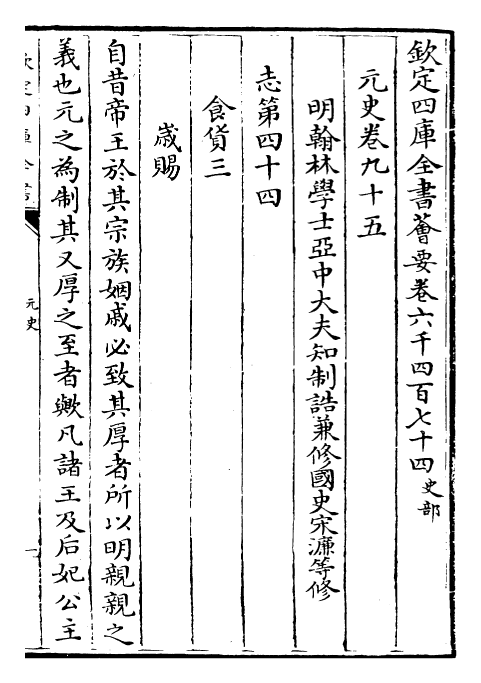 欽定四庫全書薈要卷六千四百七十四史部
元史卷九十五
明翰林學士亞中大夫知制誥兼修國史宋濂等修
志第四十四
食貨三
歲賜
自昔帝王於其宗族姻戚必致其厚者所以明親親之
義也元之為制其又厚之至者歟凡諸王及后妃公主
元史
一